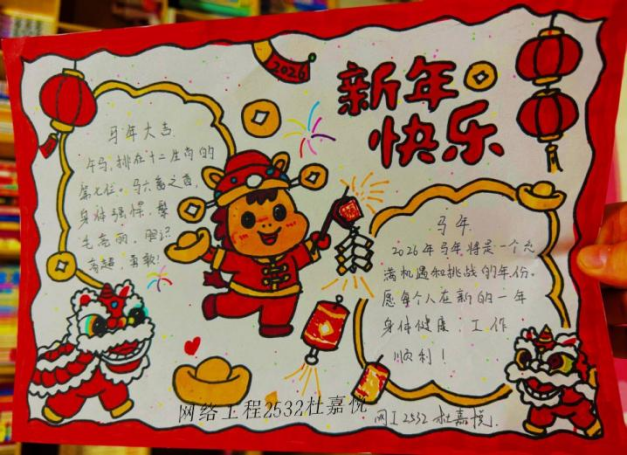 2026
新年
快乐
马年大吉
午马,排在十二生肖的
第七位。马六畜之首,
身体强悍,鬃
毛亮丽,胆识
高超,勇敢!
马年
2026年马年将是一个充
满机遇和挑战的年份。
愿每个人在新的一年
身体健康,工作
顺利!
网络工程2532杜嘉悦
网工2532 杜嘉悦.